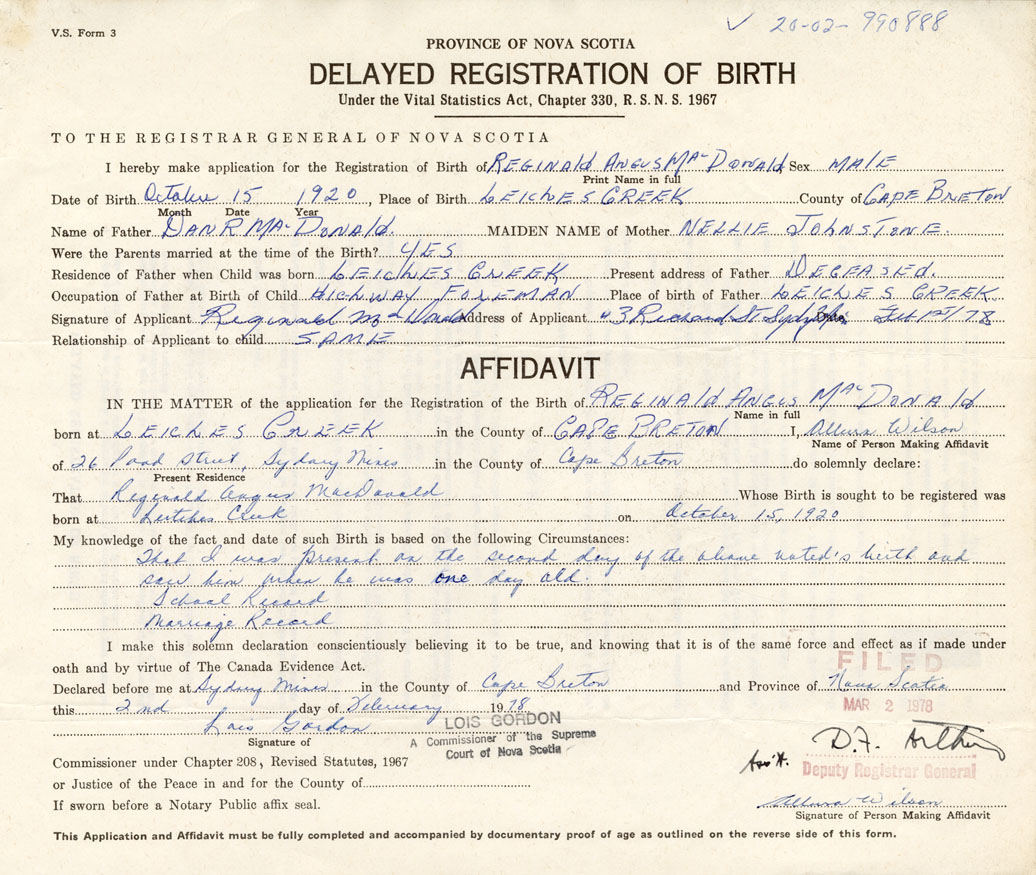 V.S. Form 3
✓ 20-02- 990888
PROVINCE OF NOVA SCOTIA
DELAYED REGISTRATION OF BIRTH
Under the Vital Statistics Act, Chapter 330, R. S. N. S. 1967
TO THE REGISTRAR GENERAL OF NOVA SCOTIA
I hereby make application for the Registration of Birth of REGINALD ANGUS MacDONALD Sex MALE
Print Name in full
Date of Birth October 15 1920, Place of Birth LEICHES CREEK County of CAPE BRETON
Month Date Year
Name of Father DAN R MacDONALD. MAIDEN NAME of Mother NELLIE JOHNSTONE.
Were the Parents married at the time of the Birth? YES
Residence of Father when Child was born LEICHES CREEK Present address of Father DECEASED.
Occupation of Father at Birth of Child HIGHWAY FOREMAN Place of birth of Father LEICHES CREEK
Signature of Applicant Reginald McDonald Address of Applicant 43 Richard St Sydney Date Feb 1st/78
Relationship of Applicant to child SAME
AFFIDAVIT
IN THE MATTER of the application for the Registration of the Birth of REGINALD ANGUS MacDONALD
Name in full
born at LEICHES CREEK in the County of CAPE BRETON I, Wilson
Name of Person Making Affidavit
of 26 Pond Street, Sydney Mines in the County of Cape Breton do solemnly declare:
Present Residence
That Reginald Angus MacDonald Whose Birth is sought to be registered was
born at Leitches Creek on October 15, 1920
My knowledge of the fact and date of such Birth is based on the following Circumstances:
That I was present on the second day of the above noted's birth and
saw him when he was one day old.
School Record
Marriage Record
I make this solemn declaration conscientiously believing it to be true, and knowing that it is of the same force and effect as if made under
oath and by virtue of The Canada Evidence Act.
FILED
Declared before me at Sydney Mines in the County of Cape Breton and Province of Nova Scotia
this 2nd day of February 1978
MAR 2 1978
Lois Gordon
LOIS GORDON
A Commissioner of the Supreme
Court of Nova Scotia
Signature of
D.F.
Commissioner under Chapter 208, Revised Statutes, 1967
Deputy Registrar General
or Justice of the Peace in and for the County of
If sworn before a Notary Public affix seal.
Wilson
Signature of Person Making Affidavit
This Application and Affidavit must be fully completed and accompanied by documentary proof of age as outlined on the reverse side of this form.